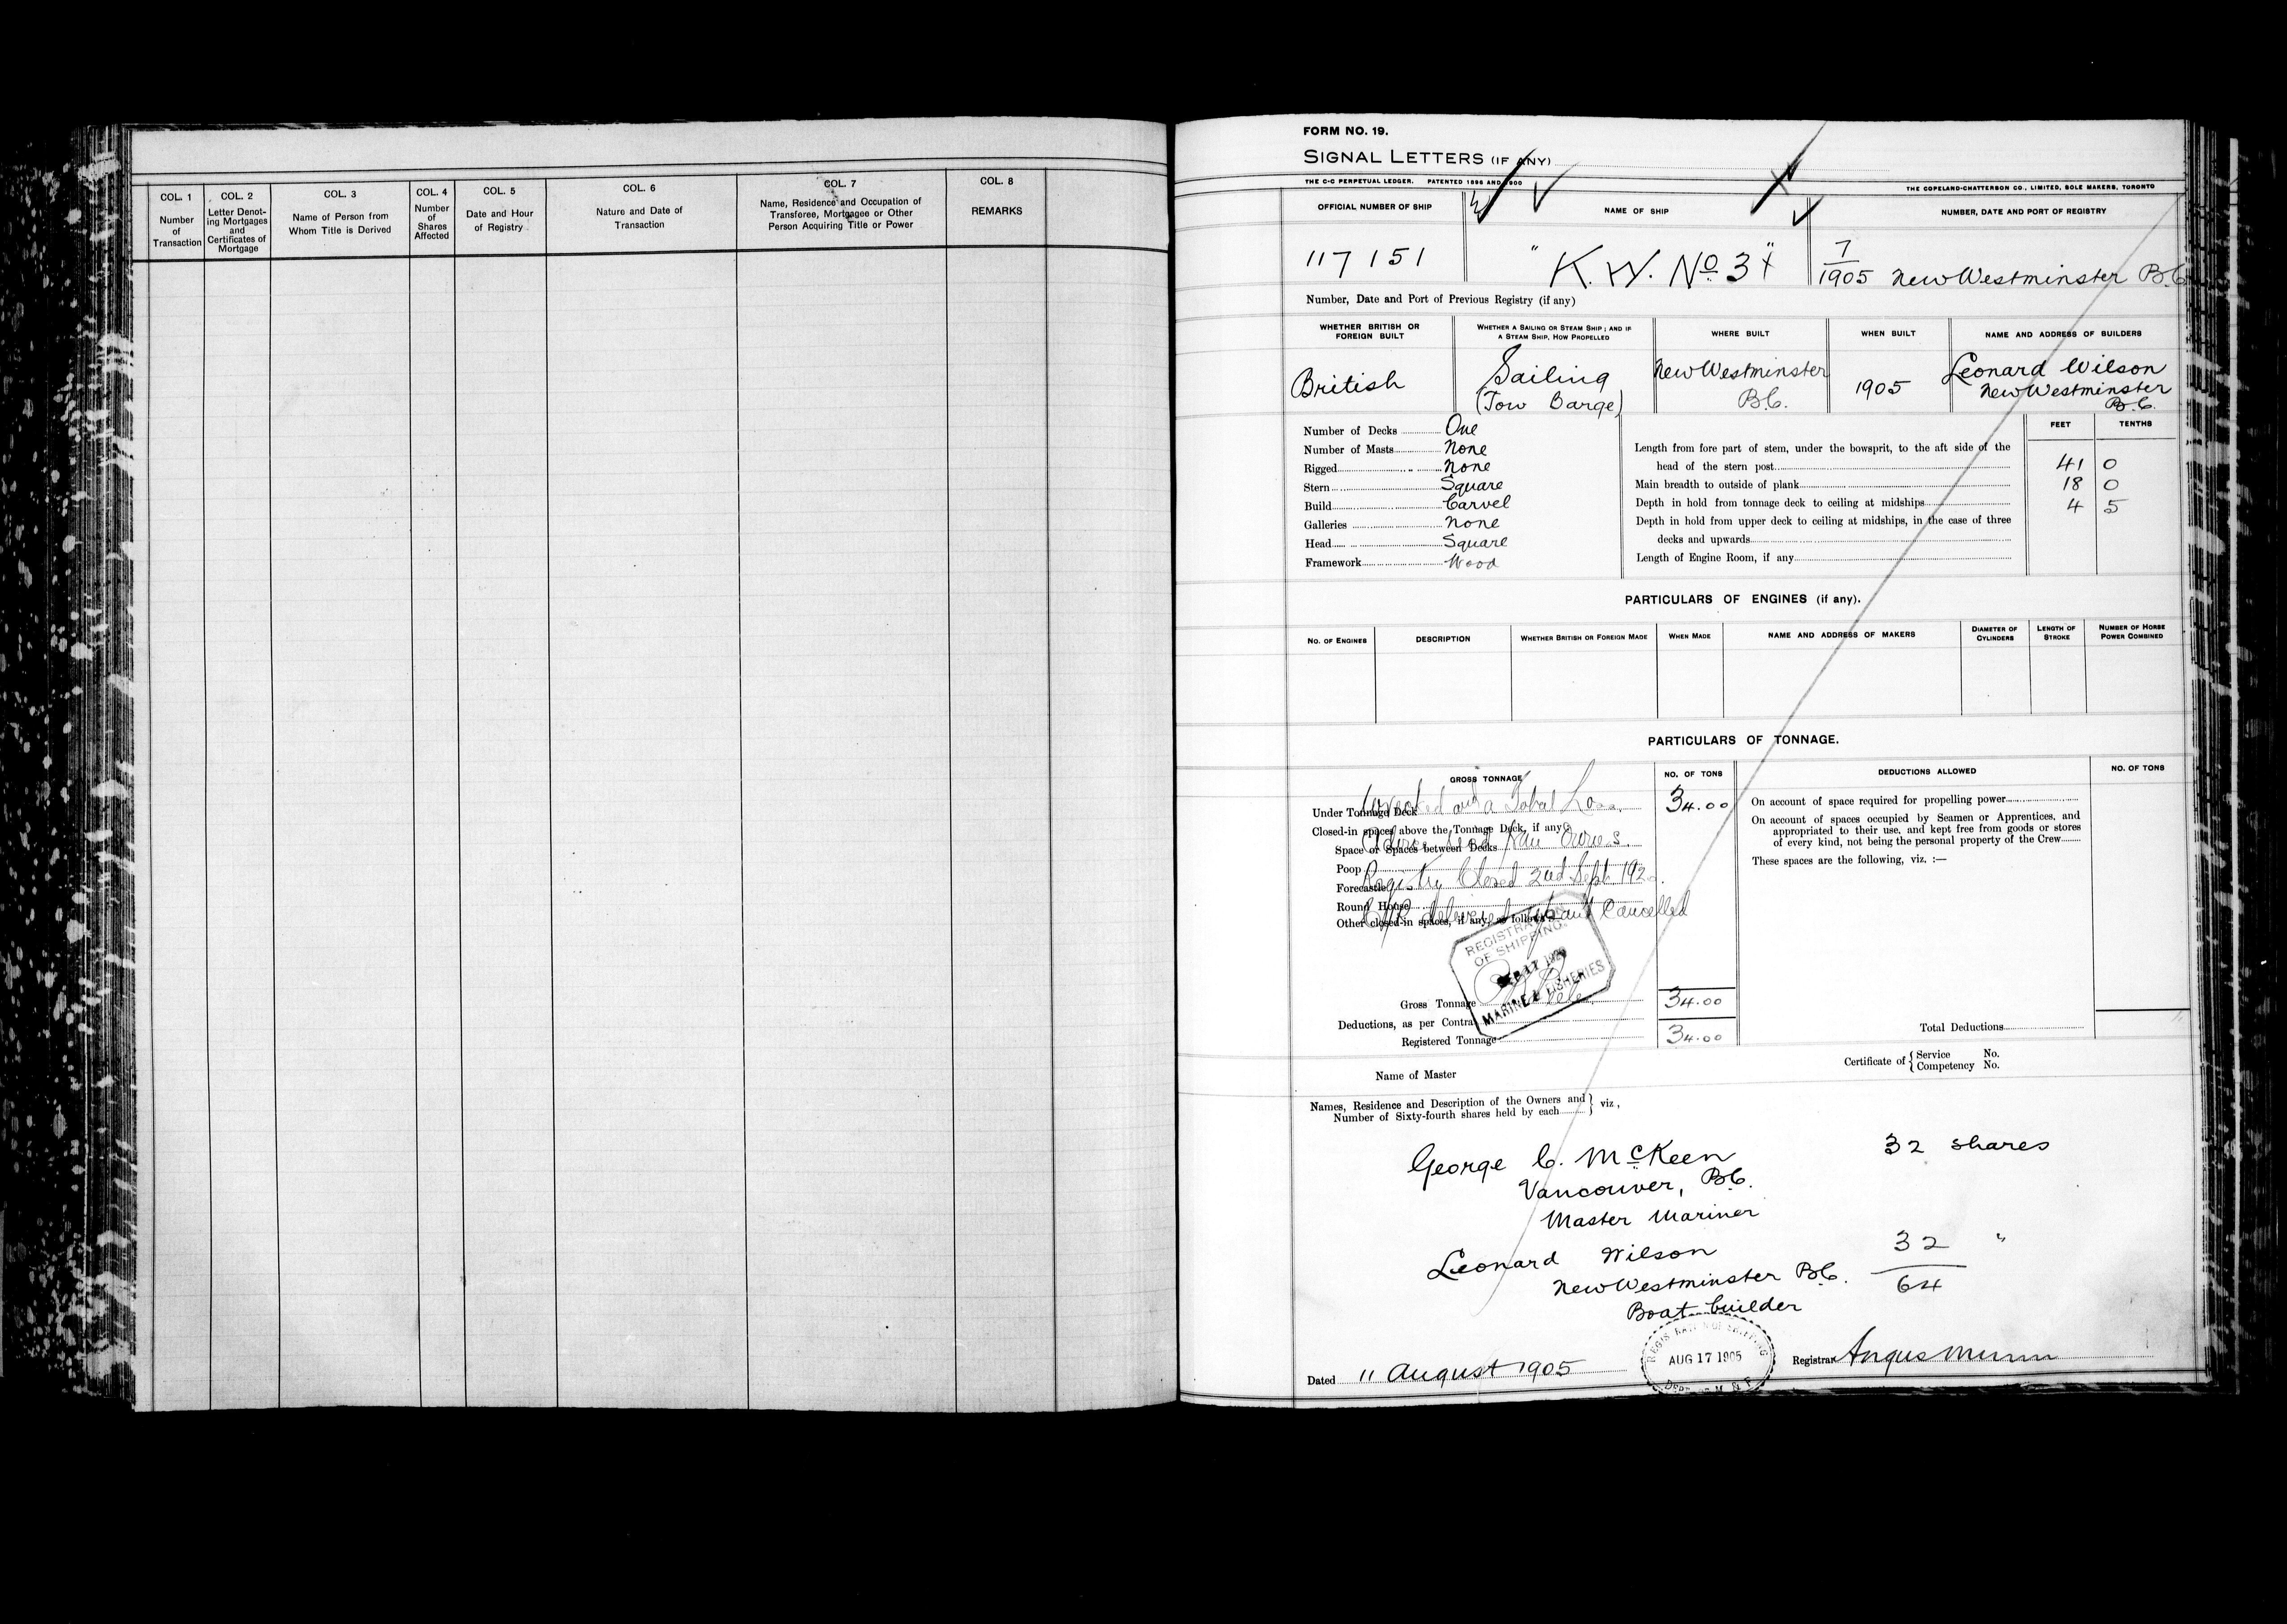 COL. 1
Number
of
Transaction
COL. 2
Letter Denot-
ing Mortgages
and
Certificates of
Mortgage
COL. 3
Name of Person from
Whom Title is Derived
COL. 4
Number
of
Shares
Affected
COL. 5
Date and Hour
of Registry
COL. 6
Nature and Date of
Transaction
COL. 7
Name, Residence and Occupation of
Transferee, Mortgagee or Other
Person Acquiring Title or Power
COL. 8
REMARKS
FORM NO. 19.
SIGNAL LETTERS (IF ANY)
THE C-C PERPETUAL LEDGER. PATENTED 1896 AND 1900
THE COPELAND-CHATTERSON CO., LIMITED, SOLE MAKERS, TORONTO
OFFICIAL NUMBER OF SHIP
NAME OF SHIP
NUMBER, DATE AND PORT OF REGISTRY
117151
"K.W. No 3"
7
1905 New Westminster B.C.
Number, Date and Port of Previous Registry (if any)
WHETHER BRITISH OR
FOREIGN BUILT
WHETHER A SAILING OR STEAM SHIP; AND IF
A STEAM SHIP, HOW PROPELLED
WHERE BUILT
WHEN BUILT
NAME AND ADDRESS OF BUILDERS
British
Sailing
(Tow Barge)
New Westminster
B.C.
1905
Leonard Wilson
New Westminster
B.C.
Number of Decks One
Number of Masts None
Rigged None
Stern Square
Build Carvel
Galleries None
Head Square
Framework Wood
FEET TENTHS
Length from fore part of stem, under the bowsprit, to the aft side of the
head of the stern post 41 0
Main breadth to outside of plank 18 0
Depth in hold from tonnage deck to ceiling at midships 4 5
Depth in hold from upper deck to ceiling at midships, in the case of three
decks and upwards
Length of Engine Room, if any
PARTICULARS OF ENGINES (if any).
NO. OF ENGINES
DESCRIPTION
WHETHER BRITISH OR FOREIGN MADE
WHEN MADE
NAME AND ADDRESS OF MAKERS
DIAMETER OF
CYLINDERS
LENGTH OF
STROKE
NUMBER OF HORSE
POWER COMBINED
PARTICULARS OF TONNAGE.
GROSS TONNAGE
NO. OF TONS
DEDUCTIONS ALLOWED
NO. OF TONS
Under Tonnage Deck 34.00
a Total Loss
Closed-in spaces above the Tonnage Deck, if any
Space or Spaces between Decks
Poop
Forecastle
Registry Closed 2nd Sept. 192
Round House
Other closed-in spaces, if any, as follows
and Cancelled
REGISTRATION
OF SHIPPING
MARINE & FISHERIES
Gross Tonnage 34.00
Deductions, as per Contra
Registered Tonnage 34.00
On account of space required for propelling power
On account of spaces occupied by Seamen or Apprentices, and
appropriated to their use, and kept free from goods or stores
of every kind, not being the personal property of the Crew
These spaces are the following, viz. :—
Total Deductions
Name of Master
Certificate of { Service No.
Competency No.
Names, Residence and Description of the Owners and
Number of Sixty-fourth shares held by each } viz,
George C. McKeen 32 shares
Vancouver, B.C.
Master Mariner
Leonard Wilson 32 "
New Westminster B.C. 64
Boat builder
Dated 11 August 1905
AUG 17 1905
Registrar Angus Munn